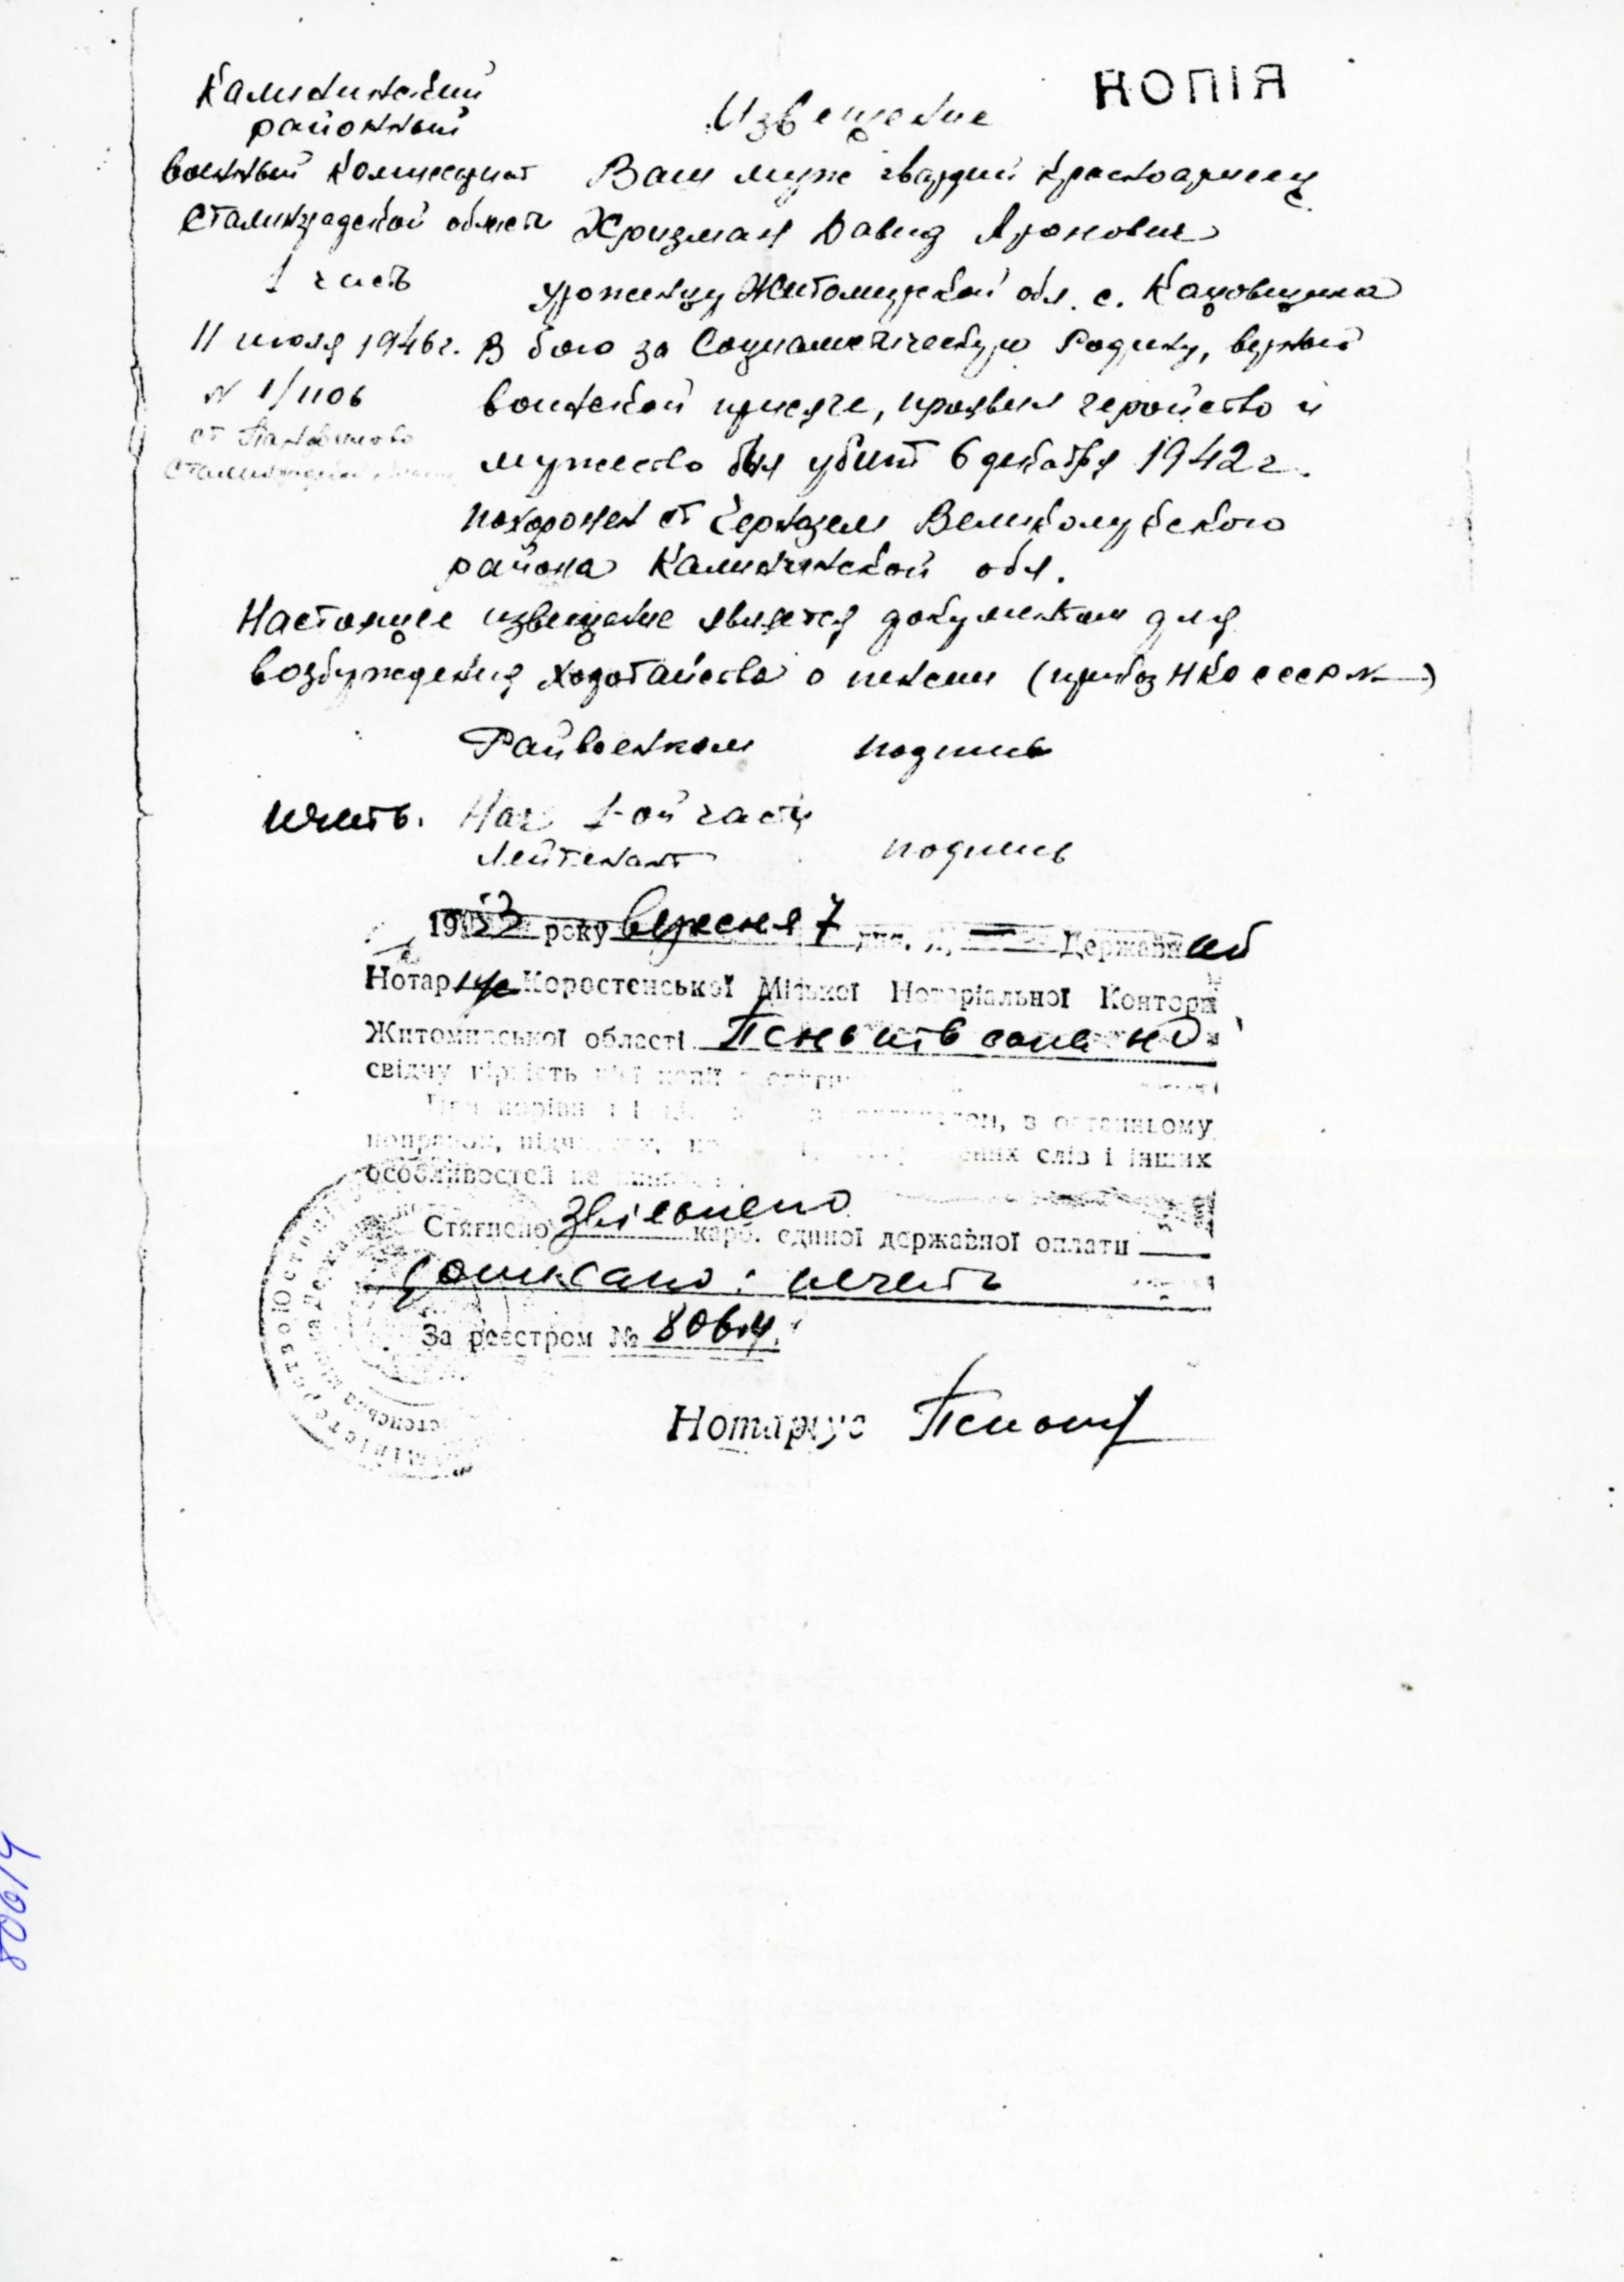 КОПІЯ
Калининский
районный
военный комиссариат
Сталинградской области
1 часть
11 июля 1946 г.
N 1/1106
ст
Извещение
Ваш муж гвардии красноармеец
Хризман Давид Аронович
уроженец Житомирской обл. с.
В бою за Социалистическую Родину, верный
воинской присяге, проявил геройство и
мужество был убит 6 декабря 1942 г.
похоронен ст Великолукского
района Калининской обл.
Настоящее извещение является документом для
возбуждения ходатайства о пенсии (приказ НКО СССР №—)
Райвоенком подпись
печать. Нач 1-ой части
Лейтенант подпись
1953 року вересня 7 дня. Я, — Державний
Нотаріус Коростенської Міської Нотаріальної Контори
Житомирської області
свідчу вірність цієї копії з
При з оригіналом, в останньому
поправок, слів і інших
особливостей не
Стягнено Звільнено карб. єдиної державної оплати
дописано: печать
За реєстром № 80614
Нотаріус
80614